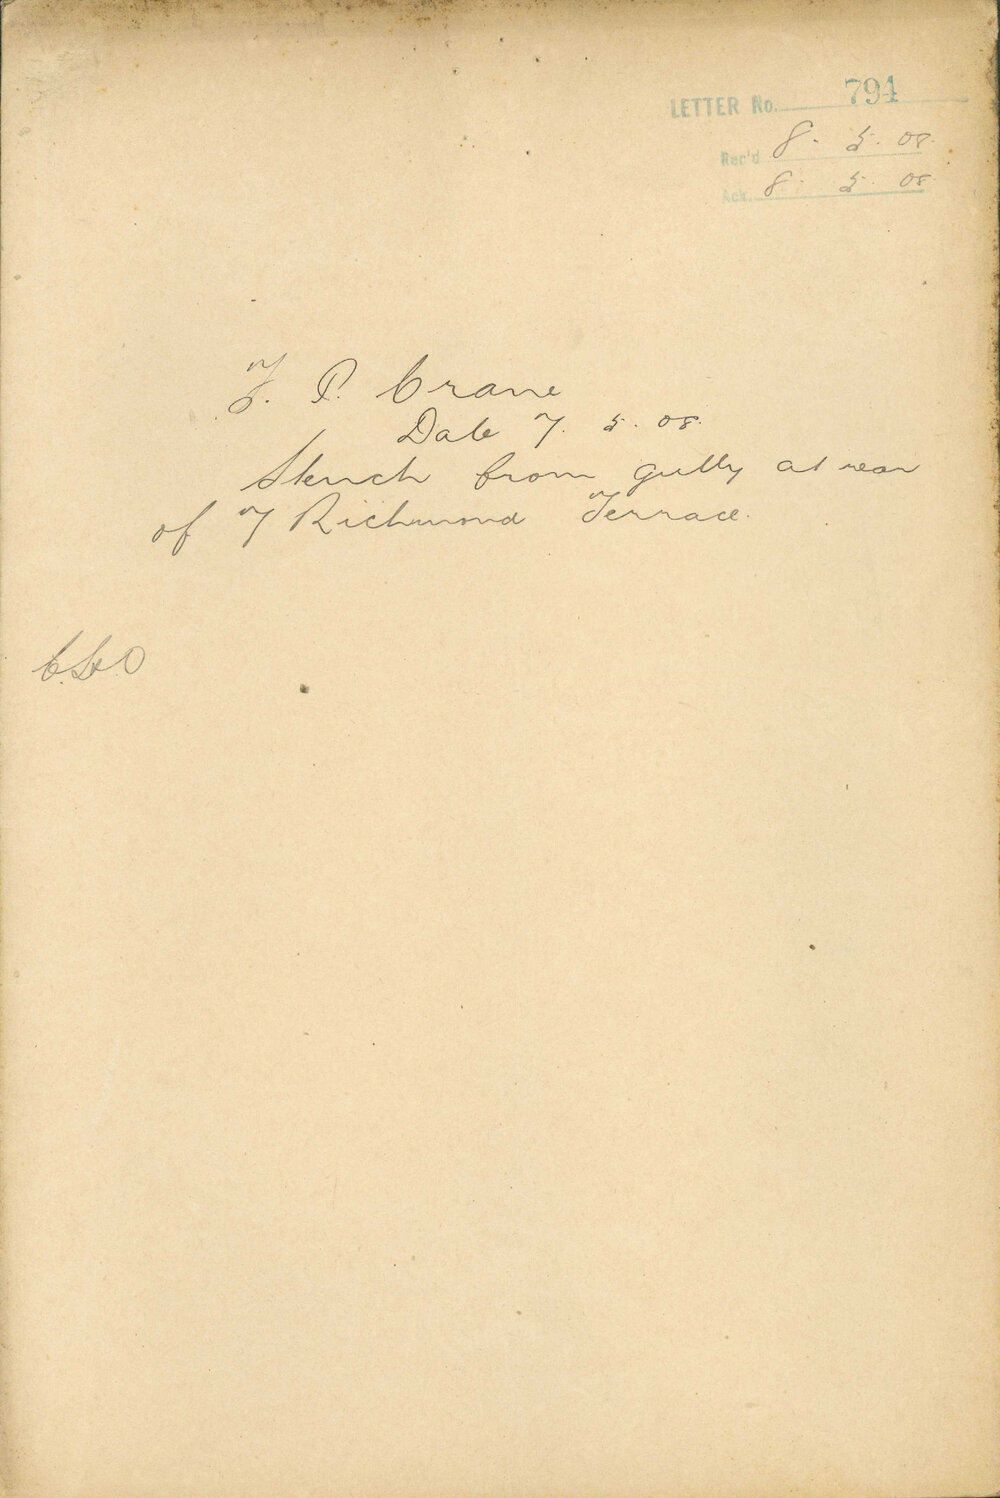 LETTER No. 794
Rec'd 8. 5. 08.
Ack. 8. 5. 08
P. Crane
Date 7. 5. 08.
Stench from gully at rear
of 7 Richmond Terrace.